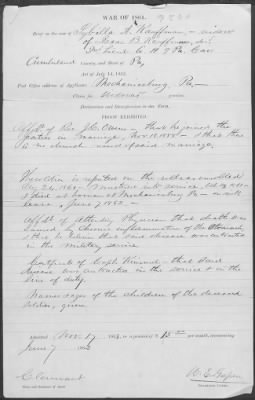 WAR OF 1861.
Brief in the case of Sybilla A. Kauffman, widow
of Isaac B. Kauffman, dec'd
1st Lieut. Co. H. 9 Pa. Cav
Cumberland County, and State of Pa,
Act of July 14, 1862.
Post Office address of Applicant: Mechanicsburg, Pa
Claim for Widows pension.
Declaration and Identification in due Form.
PROOF EXHIBITED.
of Rev. J. C. that he joined the
parties in marriage, Nov. 18, & that there
is no church record of said marriage.
Husband is reported on the rolls as enrolled
& mustered into service
& died at home at Mechanicsburg Pa on
leave June 7 1862
Affdt. of Attendg Physician that death was
caused by Chronic inflammation of the Stomach
& that to whom that said disease was contracted
in the military service.
Certificate of Capt. Kimmel that said
disease was contracted in the service & in the
line of duty.
Names & ages of the children of the deceased
soldier, given
Admitted Nov. 17 186 , to a pension of $ per month, commencing
June 7 1862